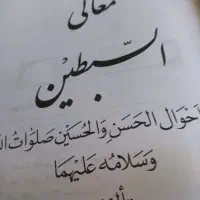 معالي
السبطين
احوال الحسن والحسين صلوات ال
وسلامه عليهما